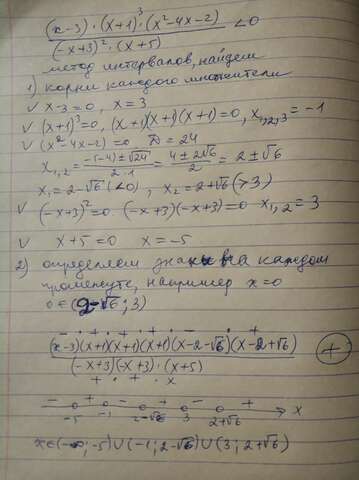 (x-3)·(x+1)³·(x²-4x-2) <0
(-x+3)²·(x+5)
метод интервалов, найдем
1) корни каждого множителя
√ x-3=0, x=3
√ (x+1)³=0, (x+1)(x+1)(x+1)=0, x₁,₂,₃=-1
√ (x²-4x-2)=0, D=24
x₁,₂ = -(-4)±√24 / 2·1 = 4±2√6 / 2 = 2±√6
x₁=2-√6 (<0), x₂=2+√6 (>3)
√ (-x+3)²=0 (-x+3)(-x+3)=0 x₁,₂=3
√ x+5=0 x=-5
2) определяем знак на каждом
промежутке, например x=0
0∈(2-√6; 3)
- · + · + · + · - · +
(x-3)(x+1)(x+1)(x+1)(x-2-√6)(x-2+√6)
(-x+3)(-x+3)·(x+5)
+ · + · x
+
- + - + - +
-5 -1 2-√6 3 2+√6 x
x∈(-∞;-5)∪(-1; 2-√6)∪(3; 2+√6)